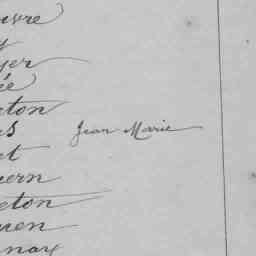 uvre
y
yer
ée
eton
s Jean Marie
et
uern
eton
uen
nay